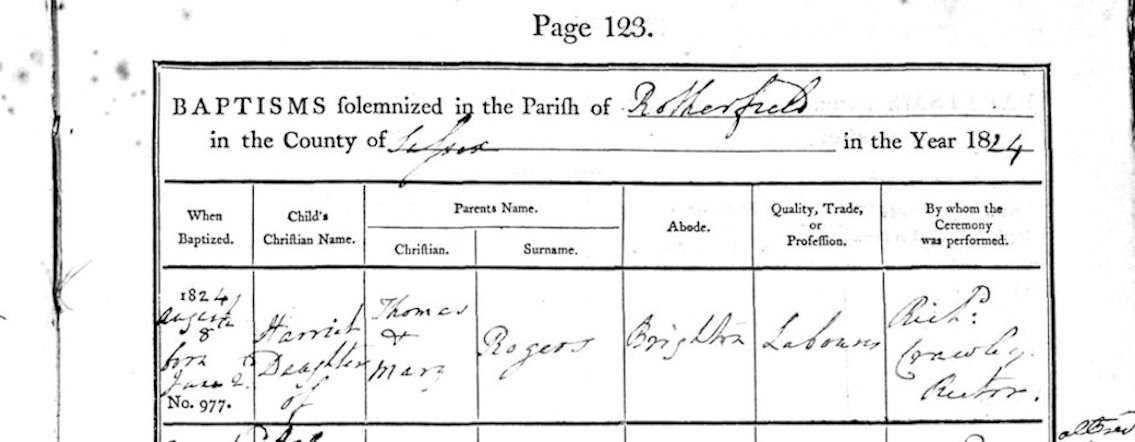 Page 123.
BAPTISMS ſolemnized in the Pariſh of Rotherfield
in the County of Suſsex in the Year 1824
When
Baptized.
Child's
Chriſtian Name.
Parents Name.
Chriſtian.
Surname.
Abode.
Quality, Trade,
or
Profeſſion.
By whom the
Ceremony
was performed.
1824
August
8th
born
June 2.
No. 977.
Harriet
Daughter
of
Thomas
&
Mary
Rogers
Brighton
Labourer
Richd.
Crawley
Rector.